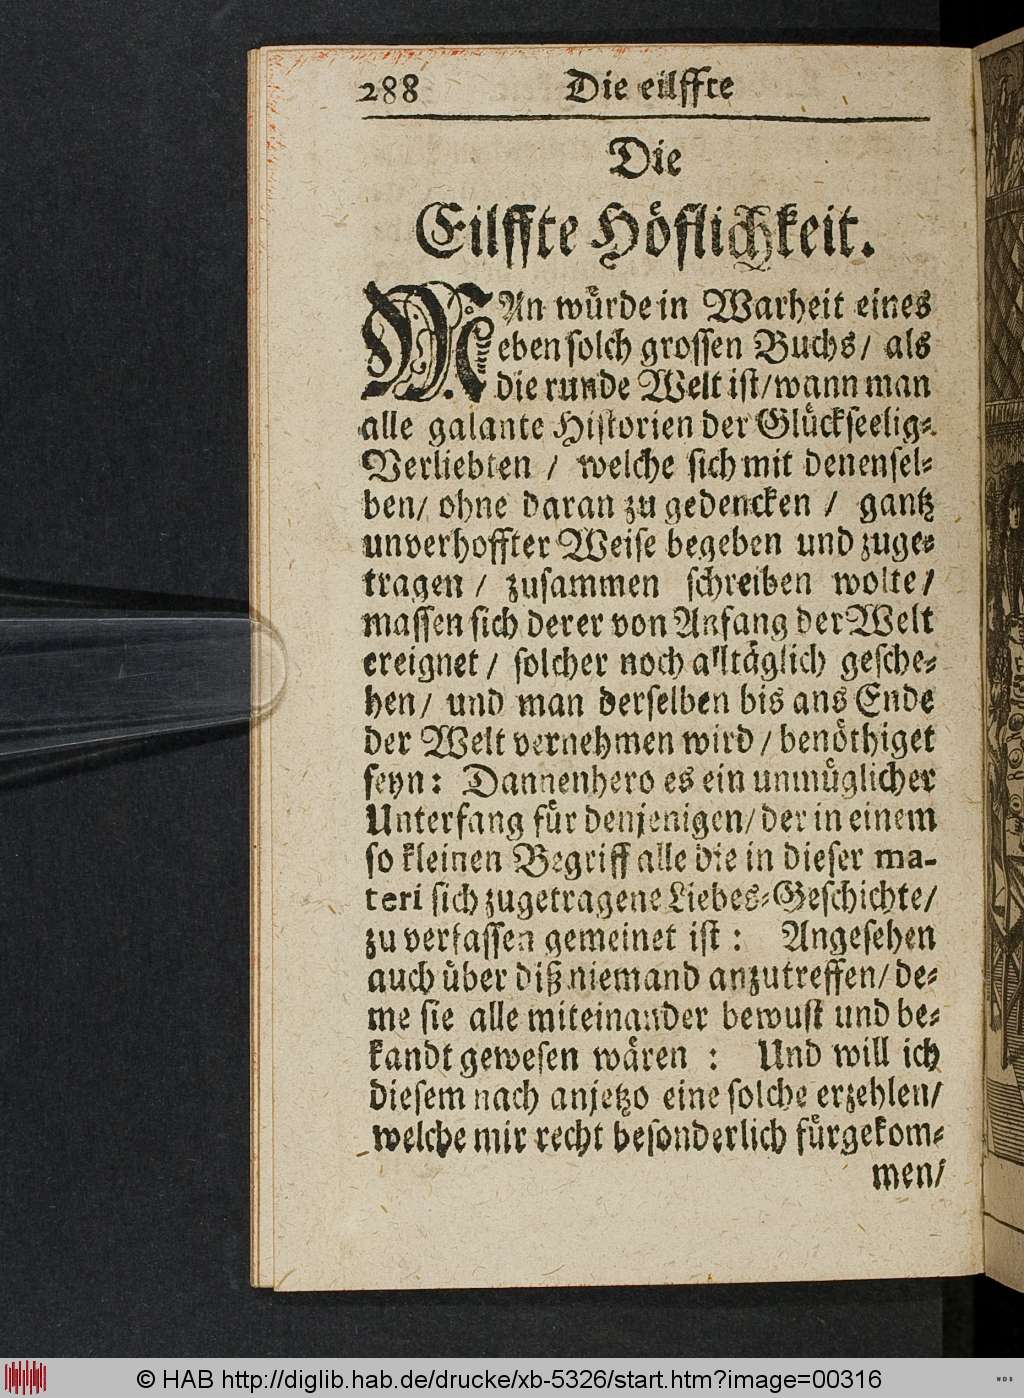 288 Die eilffte
Die
Eilffte Höflichkeit.
MAn würde in Warheit eines
eben solch grossen Buchs / als
die runde Welt ist / wann man
alle galante Historien der Glückseelig-
Verliebten / welche sich mit denensel-
ben / ohne daran zu gedencken / gantz
unverhoffter Weise begeben und zuge-
tragen / zusammen schreiben wolte /
massen sich derer von Anfang der Welt
ereignet / solcher noch alltäglich gesche-
hen / und man derselben bis ans Ende
der Welt vernehmen wird / benöthiget
seyn: Dannenhero es ein unmüglicher
Unterfang für denjenigen / der in einem
so kleinen Begriff alle die in dieser ma-
teri sich zugetragene Liebes-Geschichte /
zu verfassen gemeinet ist : Angesehen
auch über diß niemand anzutreffen / de-
me sie alle miteinander bewust und be-
kandt gewesen wären : Und will ich
diesem nach anjetzo eine solche erzehlen /
welche mir recht besonderlich fürgekom-
men /
© HAB http://diglib.hab.de/drucke/xb-5326/start.htm?image=00316